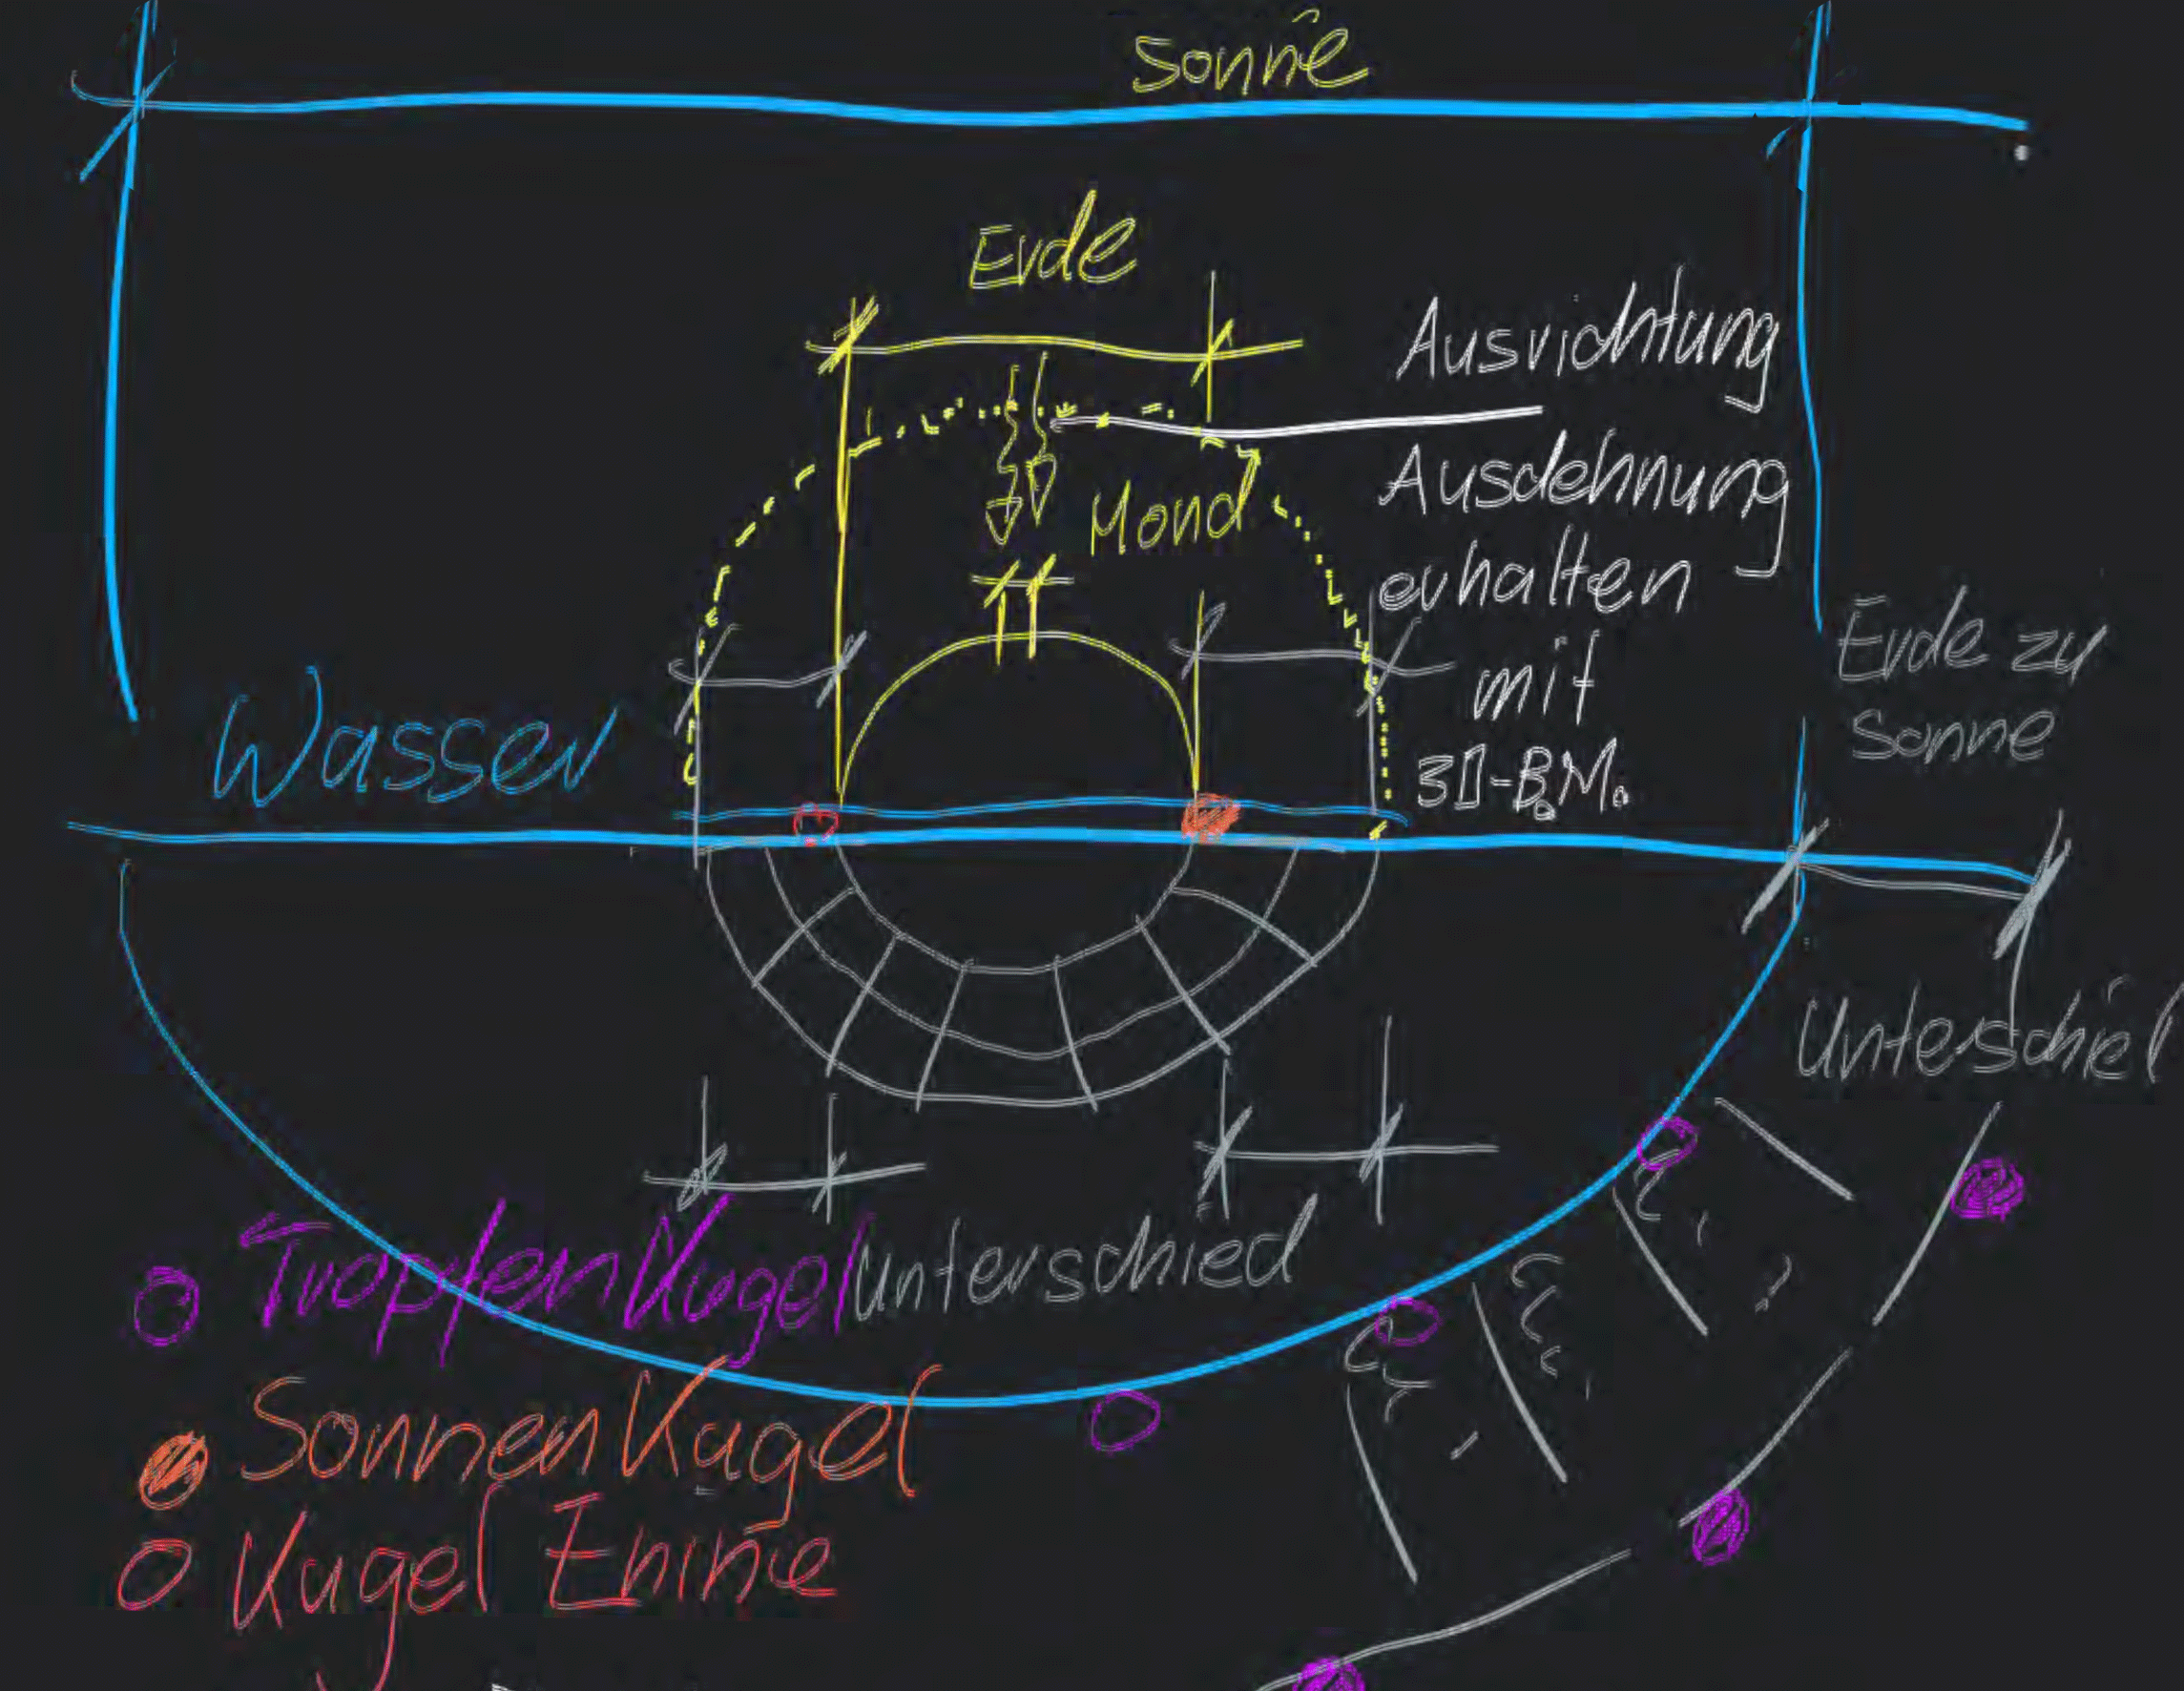 Sonne
Erde
Ausrichtung
Ausdehnung
Mond
erhalten
mit
3D-B.M.
Erde zu
Sonne
Wasser
Unterschied
Tropfen Kugel
Unterschied
Sonnen Kugel
Kugel